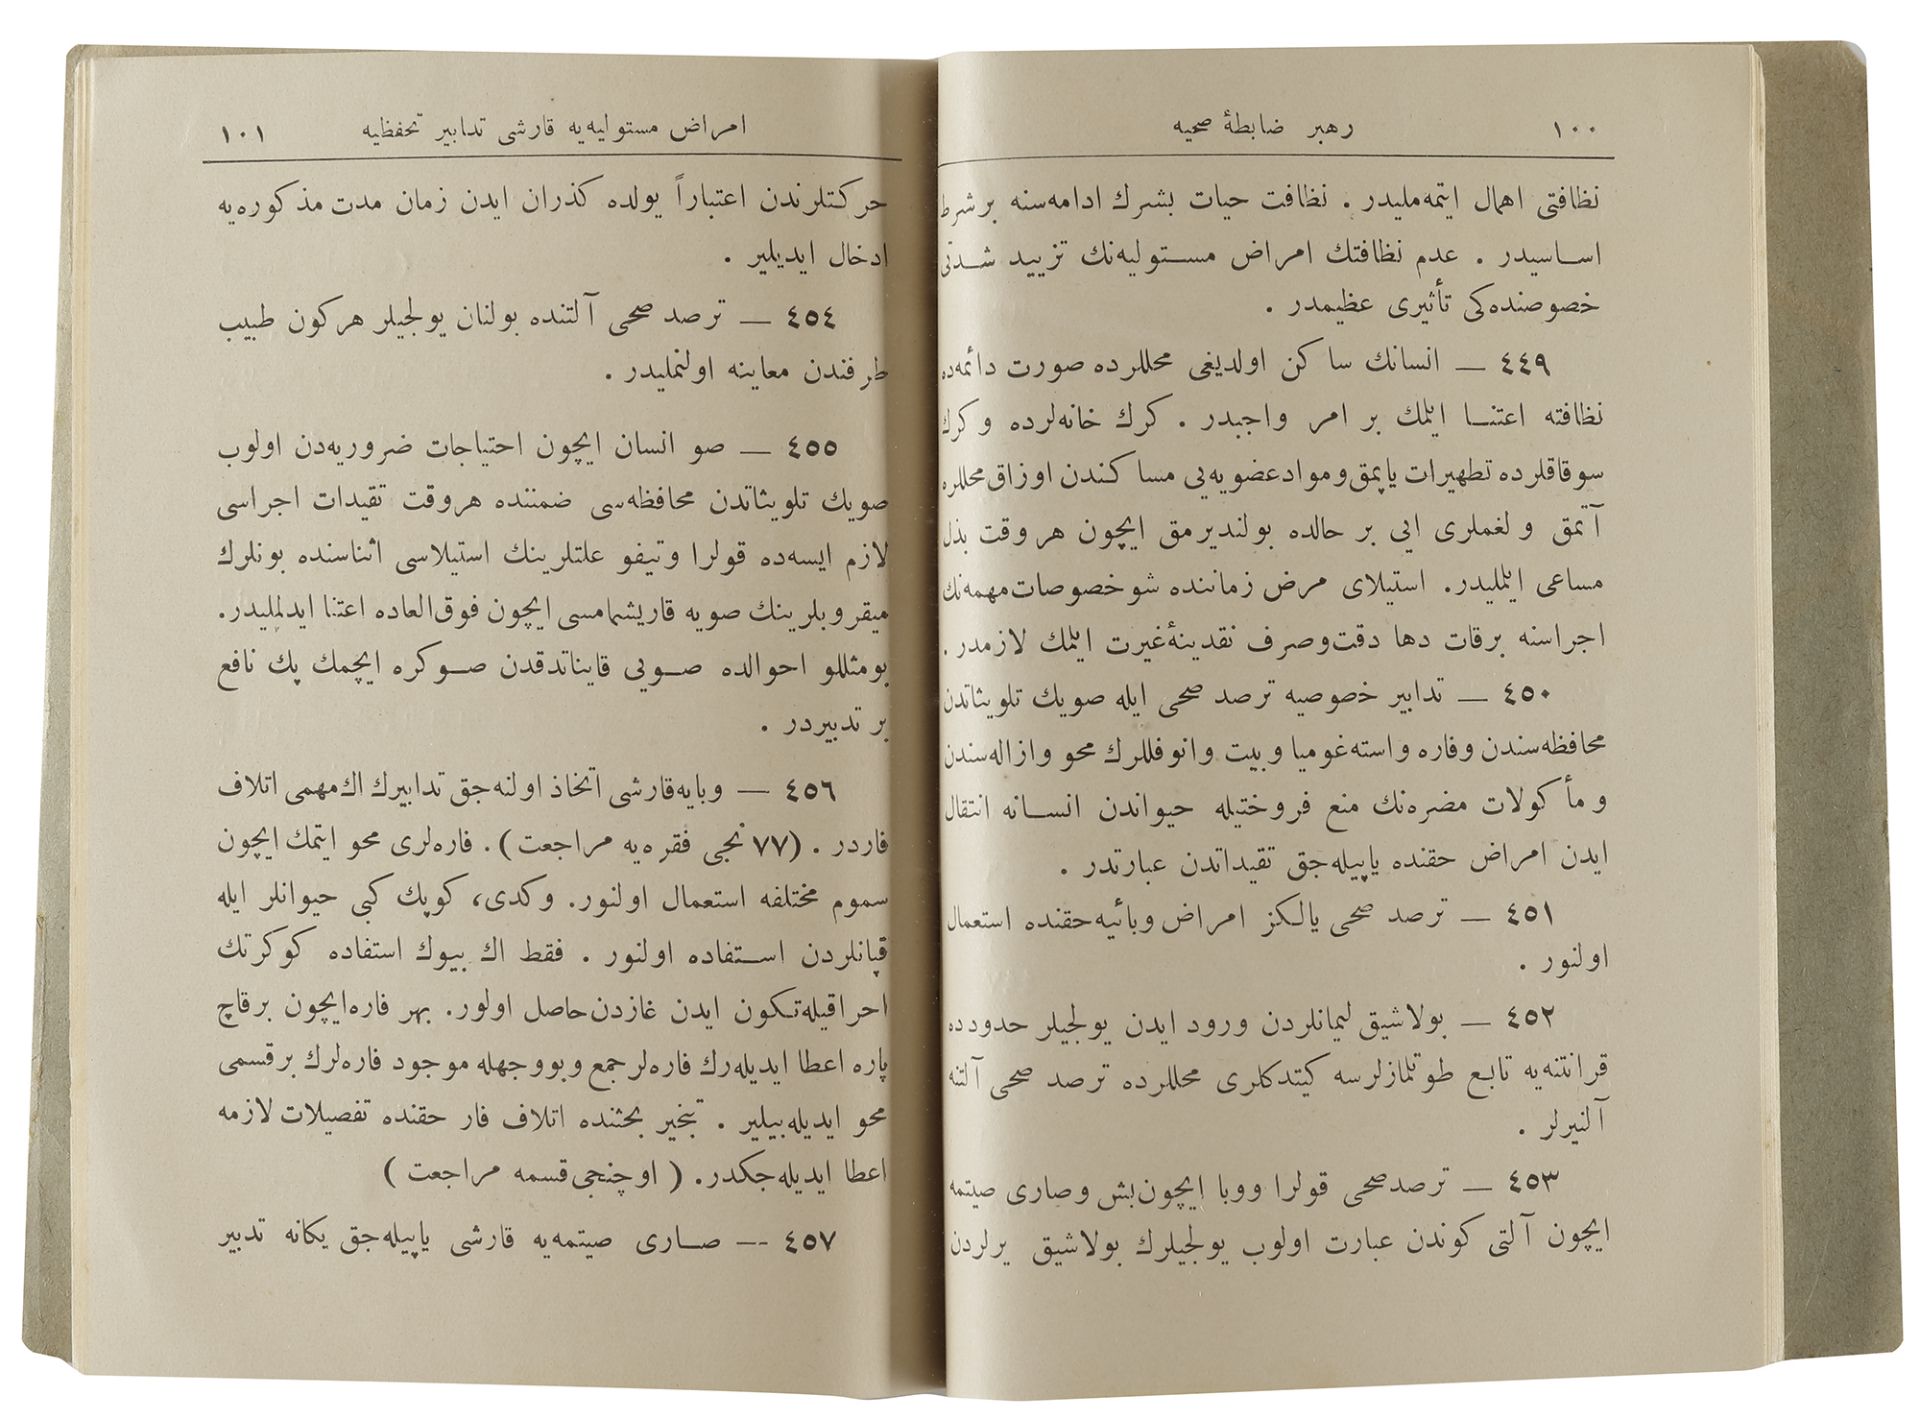 ١٠٠ رهبر ضابطهٔ صحیه
نظافتی اهمال ایتمه‌ملیدر . نظافت حیات بشرك ادامه‌سنه برشرط
اساسیدر . عدم نظافتك امراض مستولیه‌نك تزیید شدتی
خصوصنده‌کی تأثیری عظیمدر .
٤٤٩ — انسانك ساکن اولدیغی محللرده صورت دائمه‌ده
نظافته اعتنا ایلمك بر امر واجبدر . کرك خانه‌لرده و کرك
سوقاقلرده تطهیرات یاپمق ومواد عضویه‌یی مساکندن اوزاق محللره
آتمق و لغملری ایی بر حالده بولندیرمق ایچون هر وقت بذل
مساعی ایلملیدر. استیلای مرض زماننده شو خصوصات مهمه‌نك
اجراسنه برقات دها دقت وصرف نقدینهٔ غیرت ایلمك لازمدر .
٤٥٠ — تدابیر خصوصیه ترصد صحی ایله صویك تلویثاتدن
محافظه‌سندن وفاره واسته‌غومیا وبیت وانوفللرك محو وازاله‌سندن
ومأکولات مضره‌نك منع فروختیله حیواندن انسانه انتقال
ایدن امراض حقنده یاپیله‌جق تقیداتدن عبارتدر .
٤٥١ — ترصد صحی یالکز امراض وبائیه حقنده استعمال
اولنور .
٤٥٢ — بولاشیق لیمانلردن ورود ایدن یولجیلر حدودده
قرانتنه‌یه تابع طوتلمازلرسه کیتدکلری محللرده ترصد صحی آلتنه
آلنیرلر .
٤٥٣ — ترصد صحی قولرا ووبا ایچون بش وصاری صیتمه
ایچون آلتی کوندن عبارت اولوب یولجیلرك بولاشیق یرلردن
امراض مستولیه‌یه قارشی تدابیر تحفظیه ١٠١
حرکتلرندن اعتباراً یولده کذران ایدن زمان مدت مذکوره‌یه
ادخال ایدیلیر .
٤٥٤ — ترصد صحی آلتنده بولنان یولجیلر هرکون طبیب
طرفندن معاینه اولنملیدر .
٤٥٥ — صو انسان ایچون احتیاجات ضروریه‌دن اولوب
صویك تلویثاتدن محافظه‌سی ضمننده هروقت تقیدات اجراسی
لازم ایسه‌ده قولرا وتیفو علتلرینك استیلاسی اثناسنده بونلرك
میقروبلرینك صویه قاریشمامسی ایچون فوق‌العاده اعتنا ایدلملیدر.
بومثللو احوالده صویی قایناتدقدن صوکره ایچمك پك نافع
بر تدبیردر .
٤٥٦ — وبایه قارشی اتخاذ اولنه‌جق تدابیرك اك مهمی اتلاف
فاردر . (٧٧ نجی فقره‌یه مراجعت) . فاره‌لری محو ایتمك ایچون
سموم مختلفه استعمال اولنور. وکدی، کوپك کبی حیوانلر ایله
قپانلردن استفاده اولنور . فقط اك بیوك استفاده کوکرتك
احراقیله تکون ایدن غازدن حاصل اولور. بهر فاره ایچون برقاچ
پاره اعطا ایدیله‌رك فاره‌لر جمع وبووجهله موجود فاره‌لرك برقسمی
محو ایدیله‌بیلیر . تبخیر بحثنده اتلاف فار حقنده تفصیلات لازمه
اعطا ایدیله‌جکدر. ( اوچنجی قسمه مراجعت )
٤٥٧ — صاری صیتمه‌یه قارشی یاپیله‌جق یکانه تدبیر